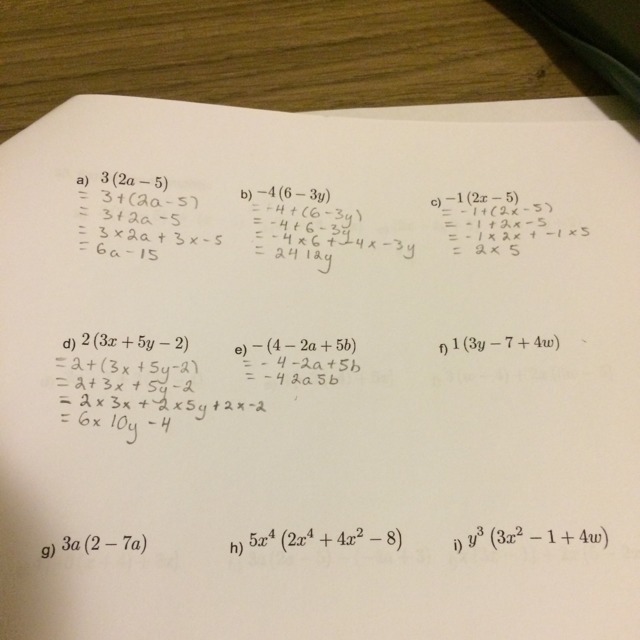 a) 3 (2a − 5)
= 3+(2a-5)
= 3+2a-5
= 3×2a + 3×-5
= 6a-15
b) −4 (6 − 3y)
= -4+(6-3y)
= -4+6-3y
= -4×6+-4×-3y
= 24 12y
c) −1 (2x − 5)
= -1+(2x-5)
= -1+2x-5
= -1×2x + -1×5
= 2x 5
d) 2 (3x + 5y − 2)
=2+(3x+5y-2)
=2+3x+5y-2
= 2×3x+2×5y+2×-2
= 6x 10y -4
e) − (4 − 2a + 5b)
= - 4-2a+5b
= -4 2a 5b
f) 1 (3y − 7 + 4w)
g) 3a (2 − 7a)
h) 5x⁴ (2x⁴ + 4x² − 8)
i) y³ (3x² − 1 + 4w)